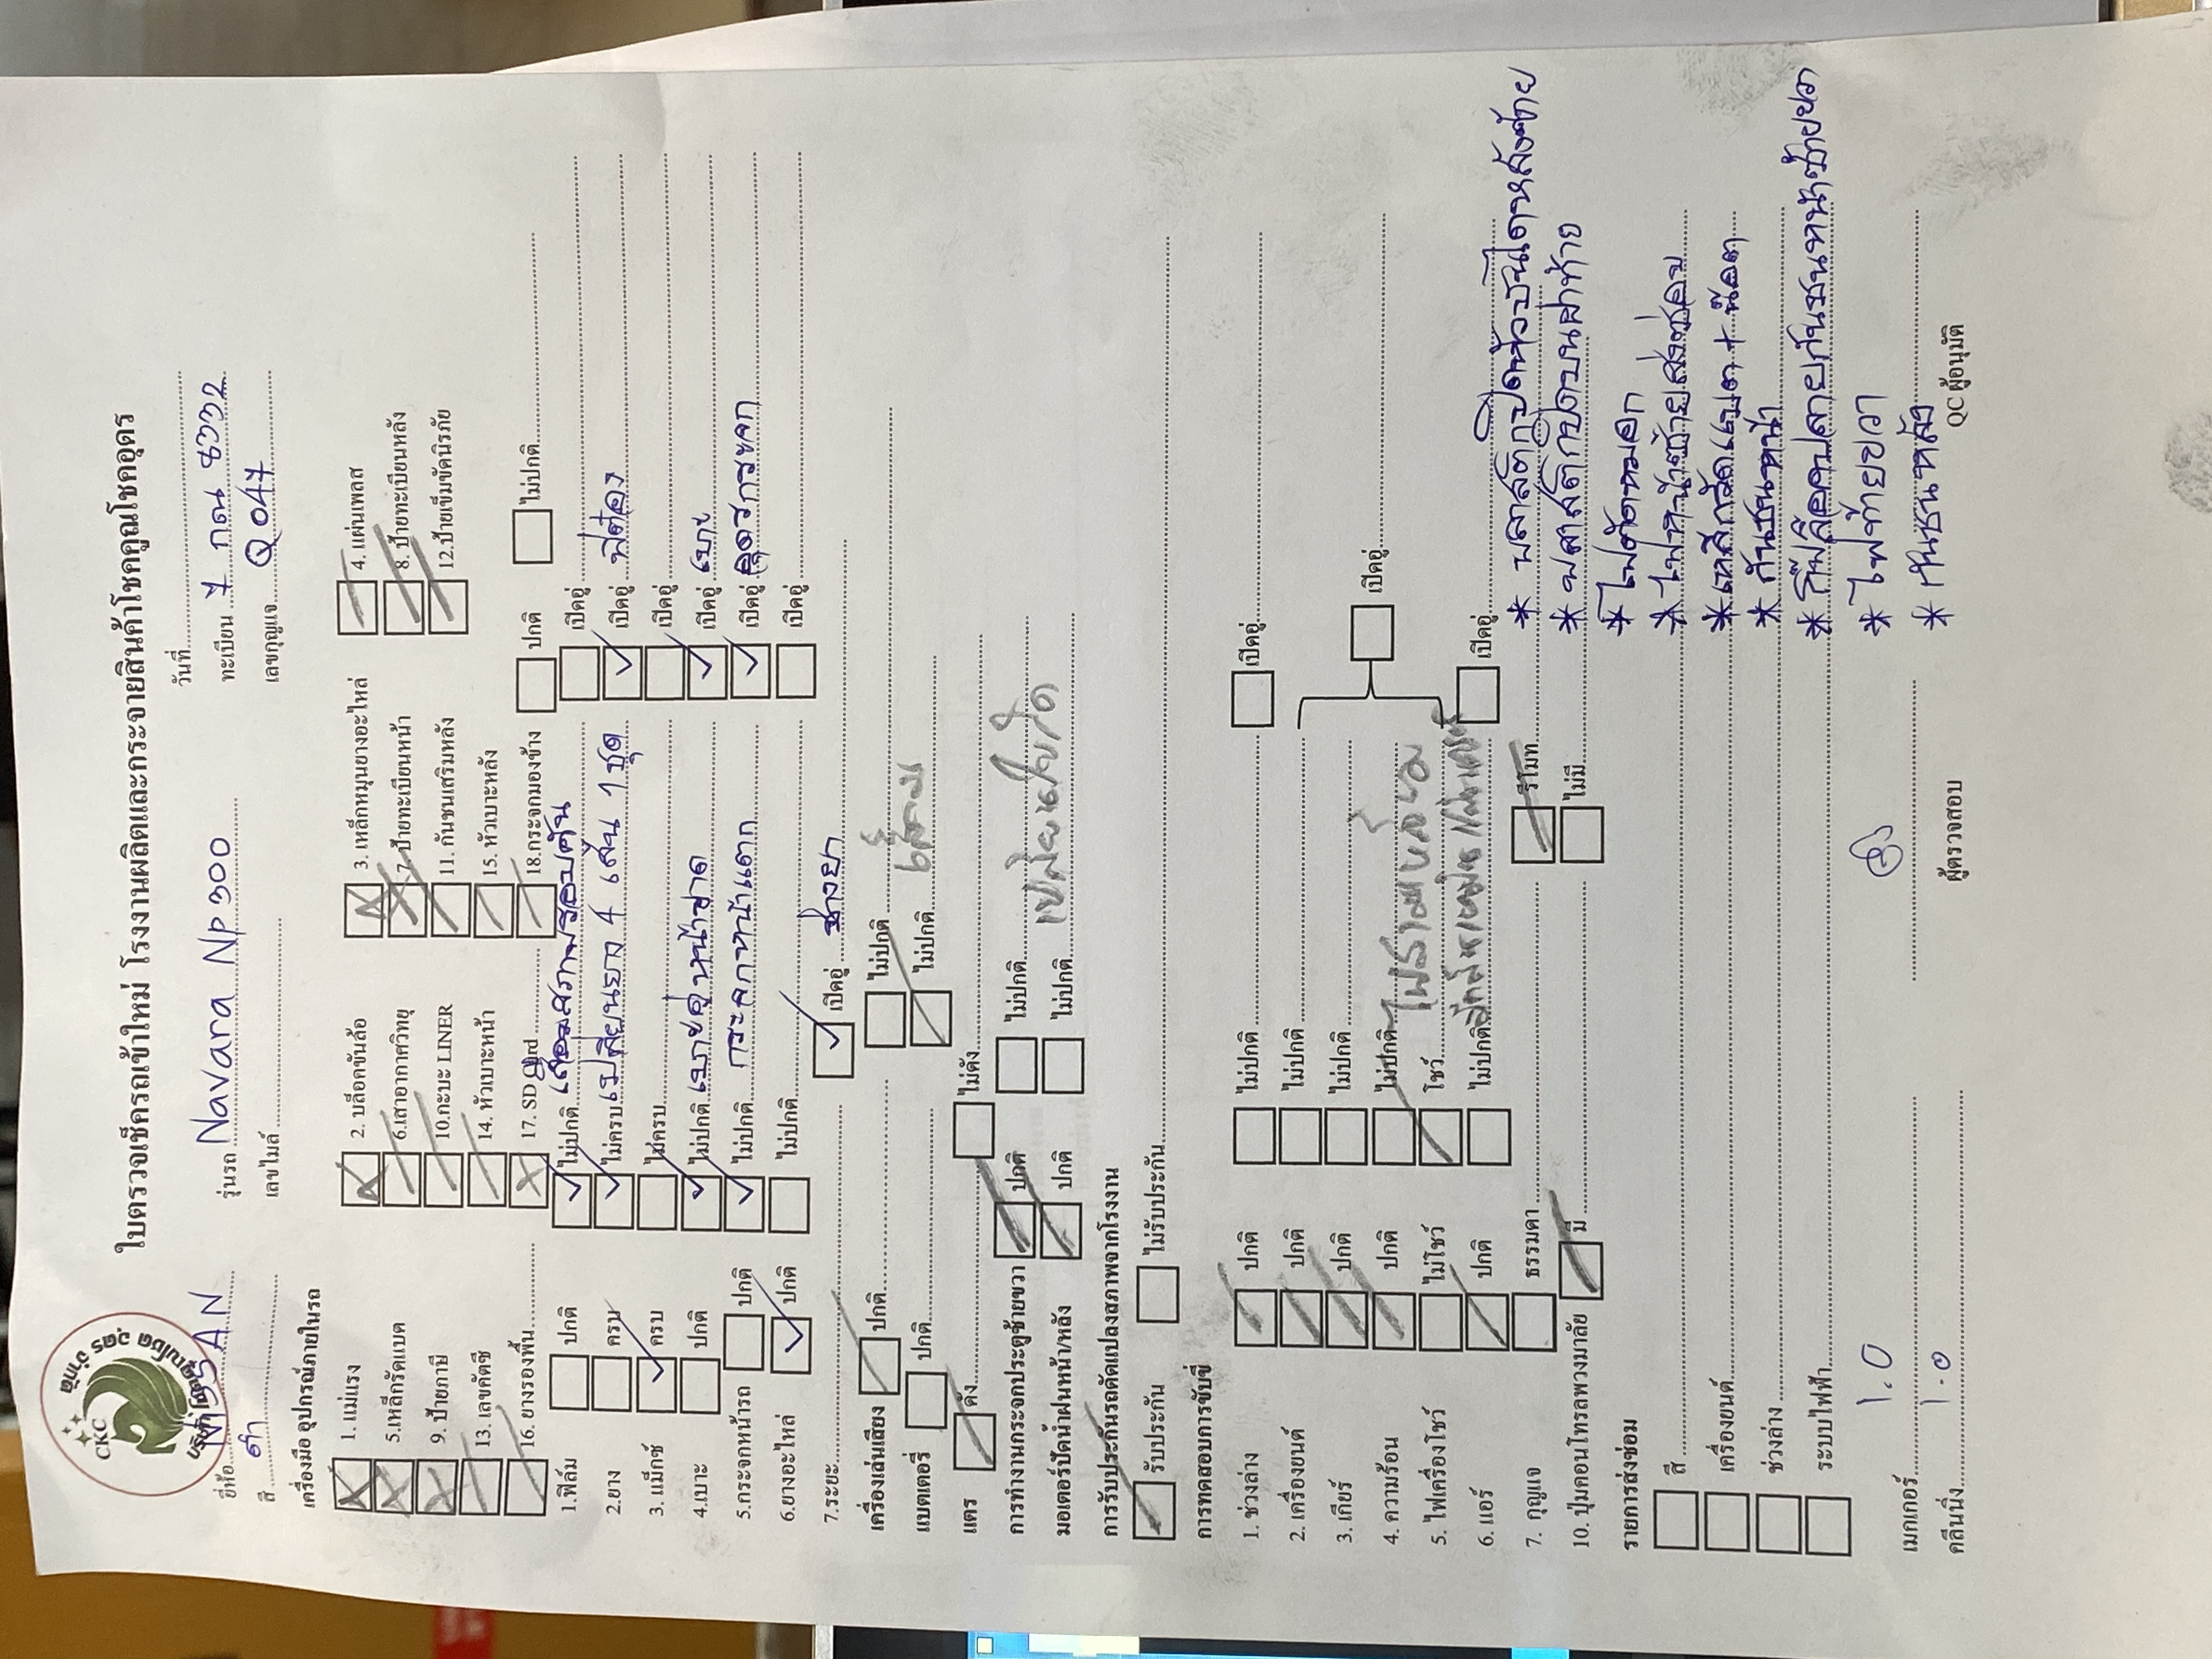 CKC
ใบตรวจเช็ครถเข้าใหม่ โรงงานผลิตและกระจายสินค้าโชคคูณโชคอุดร
วันที่
ยี่ห้อ NISSAN รุ่นรถ Navara NP 300 ทะเบียน 7 กณ 8332
สี ดำ เลขไมล์ เลขกุญแจ Q 047
เครื่องมือ อุปกรณ์ภายในรถ
1. แม่แรง 2. บล็อคขันล้อ 3. เหล็กหมุนยางอะไหล่ 4. แผ่นเพลส
5.เหล็กรัดแบต 6.เสาอากาศวิทยุ 7. ป้ายทะเบียนหน้า 8. ป้ายทะเบียนหลัง
9. ป้ายภาษี 10.กะบะ LINER 11. กันชนเสริมหลัง 12.ป้ายเข็มขัดนิรภัย
13. เลขคัตซี 14. หัวเบาะหน้า 15. หัวเบาะหลัง
16. ยางรองพื้น 17. SD Card 18.กระจกมองข้าง ปกติ ไม่ปกติ
1.ฟิล์ม ปกติ ไม่ปกติ เสื่อมสภาพรอบคัน เปิดอู่
2.ยาง ครบ ไม่ครบ เปลี่ยนยาง 4 เส้น 1 ชุด เปิดอู่
3. แม็กซ์ ครบ ไม่ครบ เปิดอู่
4.เบาะ ปกติ ไม่ปกติ เบาะคู่หน้าขาด เปิดอู่ เบาะ
5.กระจกหน้ารถ ปกติ ไม่ปกติ กระจกหน้าแตก เปิดอู่
6.ยางอะไหล่ ปกติ ไม่ปกติ เปิดอู่
7.ระยะ เปิดอู่ ช่างยา
เครื่องเล่นเสียง ปกติ ไม่ปกติ
แบตเตอรี่ ปกติ ไม่ปกติ
แตร ดัง ไม่ดัง
การทำงานกระจกประตูซ้ายขวา ปกติ ไม่ปกติ
มอเตอร์ปัดน้ำฝนหน้า/หลัง ปกติ ไม่ปกติ
การรับประกันรถดัดแปลงสภาพจากโรงงาน
รับประกัน ไม่รับประกัน
การทดสอบการขับขี่
1. ช่วงล่าง ปกติ ไม่ปกติ เปิดอู่
2. เครื่องยนต์ ปกติ ไม่ปกติ
3. เกียร์ ปกติ ไม่ปกติ เปิดอู่
4. ความร้อน ปกติ ไม่ปกติ
5. ไฟเครื่องโชว์ ไม่โชว์ โชว์
6. แอร์ ปกติ ไม่ปกติ เปิดอู่
7. กุญแจ ธรรมดา รีโมท
* พลาสติกปิดหัวบันไดหลังซ้าย
10. ปุ่มคอนโทรลพวงมาลัย มี ไม่มี
* พลาสติกปิดบนฝาท้าย
* ไฟตัดหมอก
รายการส่งซ่อม
* ไฟหน้าซ้ายส่งซ่อม
สี
* เหล็กรัดแบต + น๊อต
เครื่องยนต์
* กันชนหน้า
ช่วงล่าง
* กิ๊ฟล็อคปลายกันชนหน้าซ้ายขวา
ระบบไฟฟ้า
* ไฟท้ายขวา
เมกเกอร์ 1.0
* กันชนหลัง
คลีนนิ่ง 1.0
ผู้ตรวจสอบ QC ผู้อนุมัติ